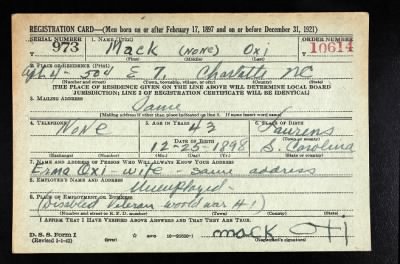 REGISTRATION CARD—(Men born on or after February 17, 1897 and on or before December 31, 1921)
SERIAL NUMBER 1. NAME (Print) ORDER NUMBER
973 Mack (NONE) Oxi 10614
(First) (Middle) (Last)
2. PLACE OF RESIDENCE (Print)
Apt 4 - 504 E 7. Charlotte NC
(Number and street) (Town, township, village, or city) (County) (State)
[THE PLACE OF RESIDENCE GIVEN ON THE LINE ABOVE WILL DETERMINE LOCAL BOARD
JURISDICTION; LINE 2 OF REGISTRATION CERTIFICATE WILL BE IDENTICAL]
3. MAILING ADDRESS
Same
[Mailing address if other than place indicated on line 2. If same insert word same]
4. TELEPHONE 5. AGE IN YEARS 6. PLACE OF BIRTH
None 43 Laurens
DATE OF BIRTH (Town or county)
12-25-1898 S. Carolina
(Exchange) (Number) (Mo.) (Day) (Yr.) (State or country)
7. NAME AND ADDRESS OF PERSON WHO WILL ALWAYS KNOW YOUR ADDRESS
Erma Oxi - wife - same address
8. EMPLOYER'S NAME AND ADDRESS
Unemployed -
9. PLACE OF EMPLOYMENT OR BUSINESS
(Disabled Veteran World War #1)
(Number and street or R. F. D. number) (Town) (County) (State)
I AFFIRM THAT I HAVE VERIFIED ABOVE ANSWERS AND THAT THEY ARE TRUE.
D. S. S. Form 1
(Revised 1-1-42) (over) mack oxi
(Registrant's signature)